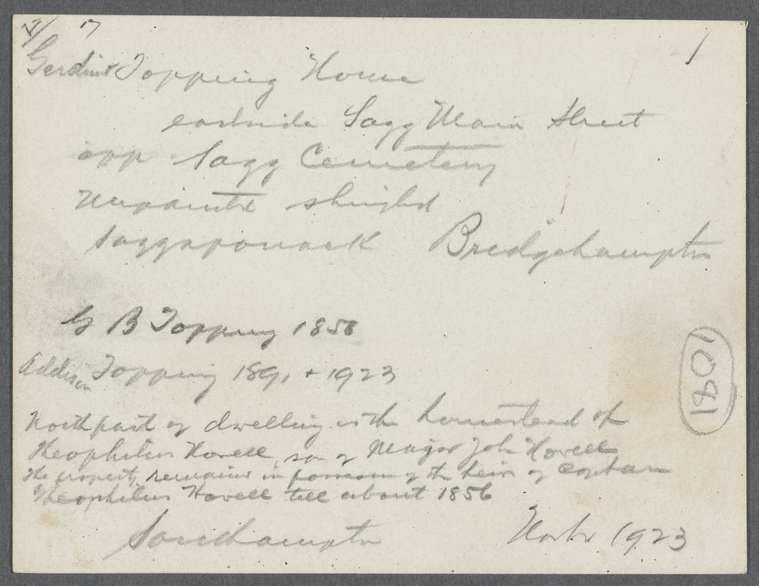 7
1
Gardiner Topping House
eastside Sagg Main Street
opp Sagg Cemetery
unpainted shingled
Saggaponack Bridgehampton
G B Topping 1858
Addison Topping 1891 + 1923
1081
North part of dwelling is the homestead of
Theophilus Howell, son of Major John Howell
The property remained in possession of the heirs of Captain
Theophilus Howell till about 1856
Southampton 1923